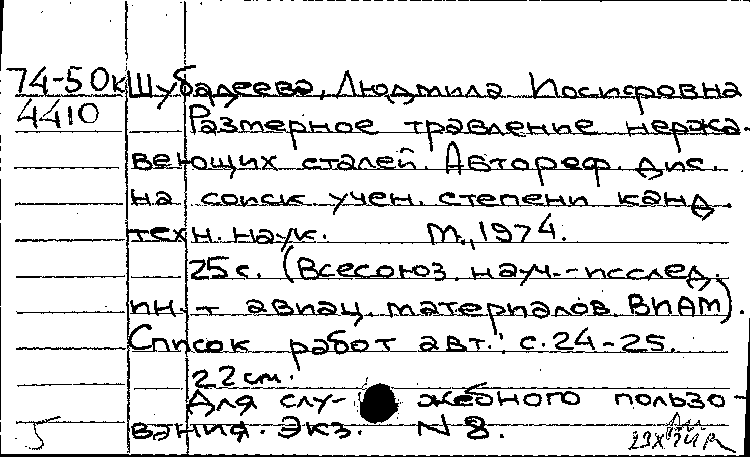 74-50к Шубадеева, Людмила Иосифовна
4410 Размерное травление нержа-
веющих сталей. Автореф. дис.
на соиск. учен. степени канд.
техн. наук. М., 1974.
25 с. (Всесоюз. науч.-исслед.
ин.-т авиац. материалов ВИАМ).
Список работ авт.: с. 24-25.
22 см.
Для слу- жебного пользо-
вания. Экз. N 8.
5